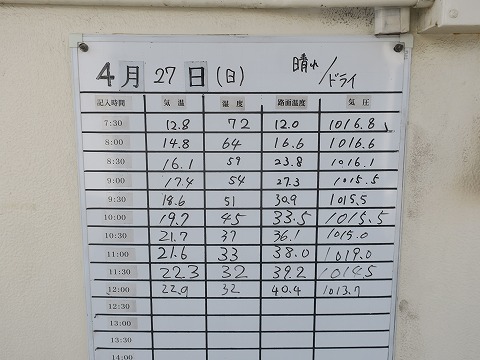 4月 27日 (日) 晴れ/ドライ
記入時間 気温 湿度 路面温度 気圧
7:30 12.8 72 12.0 1016.8
8:00 14.8 64 16.6 1016.6
8:30 16.1 59 23.8 1016.1
9:00 17.4 54 27.3 1015.5
9:30 18.6 51 30.9 1015.5
10:00 19.7 45 33.5 1015.5
10:30 21.7 37 36.1 1015.0
11:00 21.6 33 38.0 1019.0
11:30 22.3 32 39.2 1014.5
12:00 22.9 32 40.4 1013.7
12:30
13:00
13:30
14:00